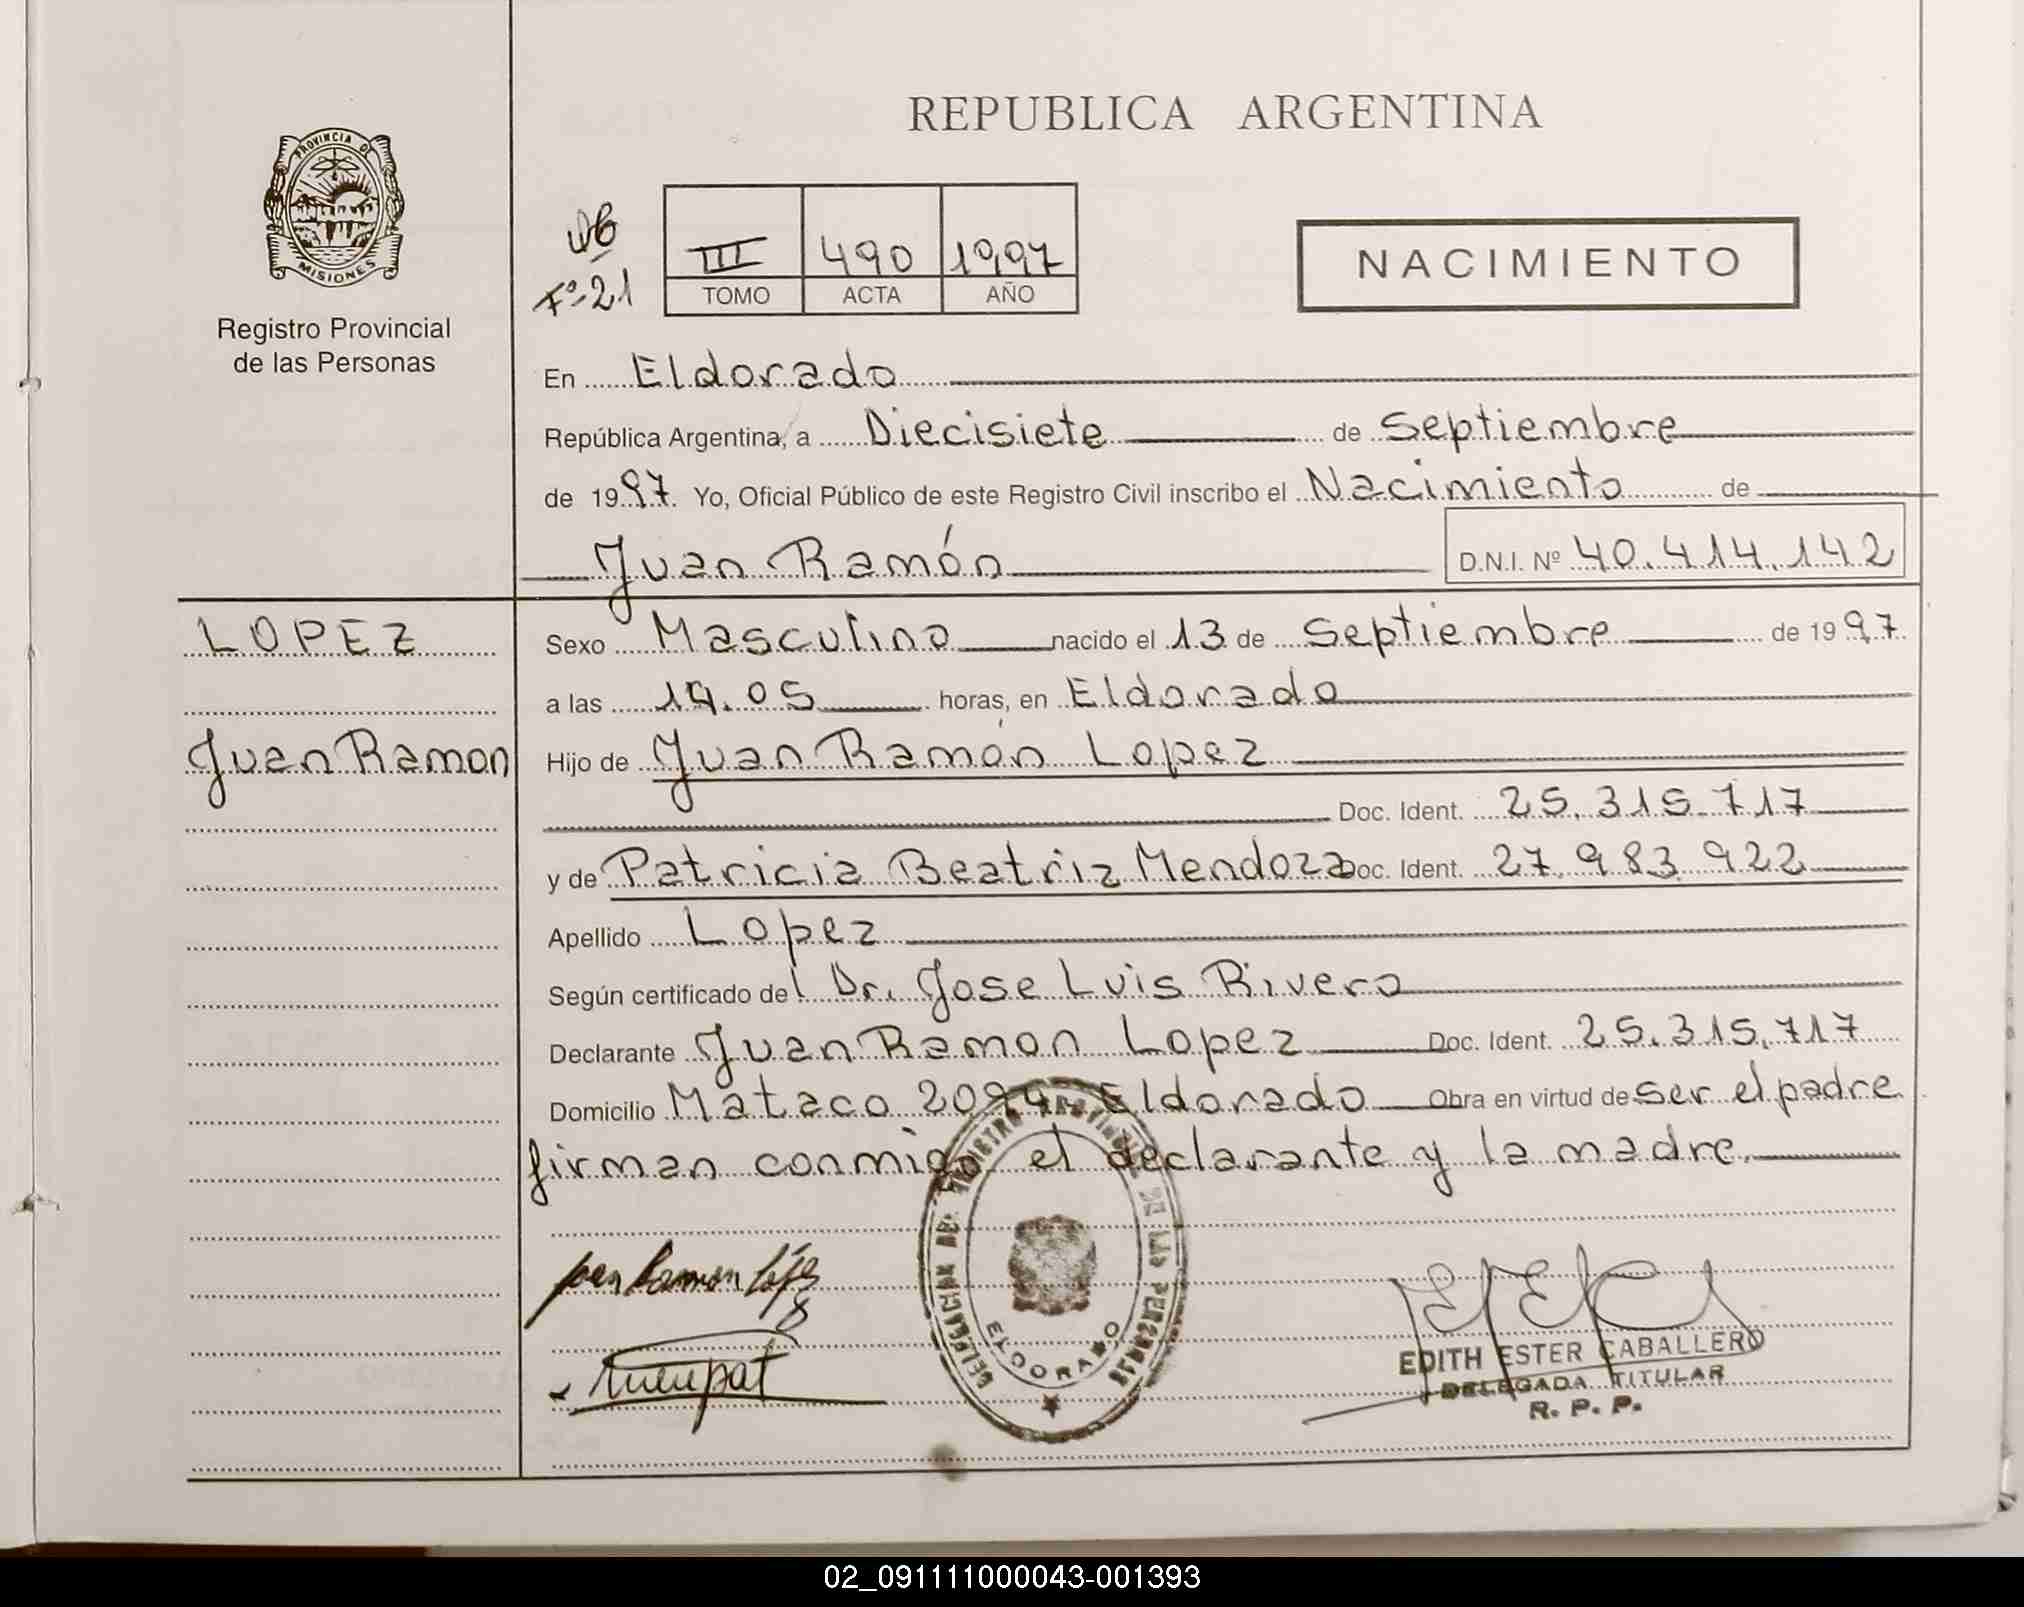 REPUBLICA ARGENTINA
PROVINCIA DE
MISIONES
Registro Provincial
de las Personas
Fº 21
III 490 1997
TOMO ACTA AÑO
NACIMIENTO
En Eldorado
República Argentina, a Diecisiete de Septiembre
de 1997. Yo, Oficial Público de este Registro Civil inscribo el Nacimiento de
Juan Ramón D.N.I. Nº 40.414.142
LOPEZ
Juan Ramon
Sexo Masculino nacido el 13 de Septiembre de 1997.
a las 19.05 horas, en Eldorado
Hijo de Juan Ramón Lopez
Doc. Ident. 25.315.717
y de Patricia Beatriz Mendoza Doc. Ident. 27.983.922
Apellido Lopez
Según certificado del Dr. Jose Luis Rivero
Declarante Juan Ramon Lopez Doc. Ident. 25.315.717
Domicilio Mataco Eldorado Obra en virtud de ser el padre
firman conmigo el declarante y la madre.
DELEGACION DEL REGISTRO PROVINCIAL DE LAS PERSONAS
ELDORADO
EDITH ESTER CABALLERO
DELEGADA TITULAR
R. P. P.
02_091111000043-001393